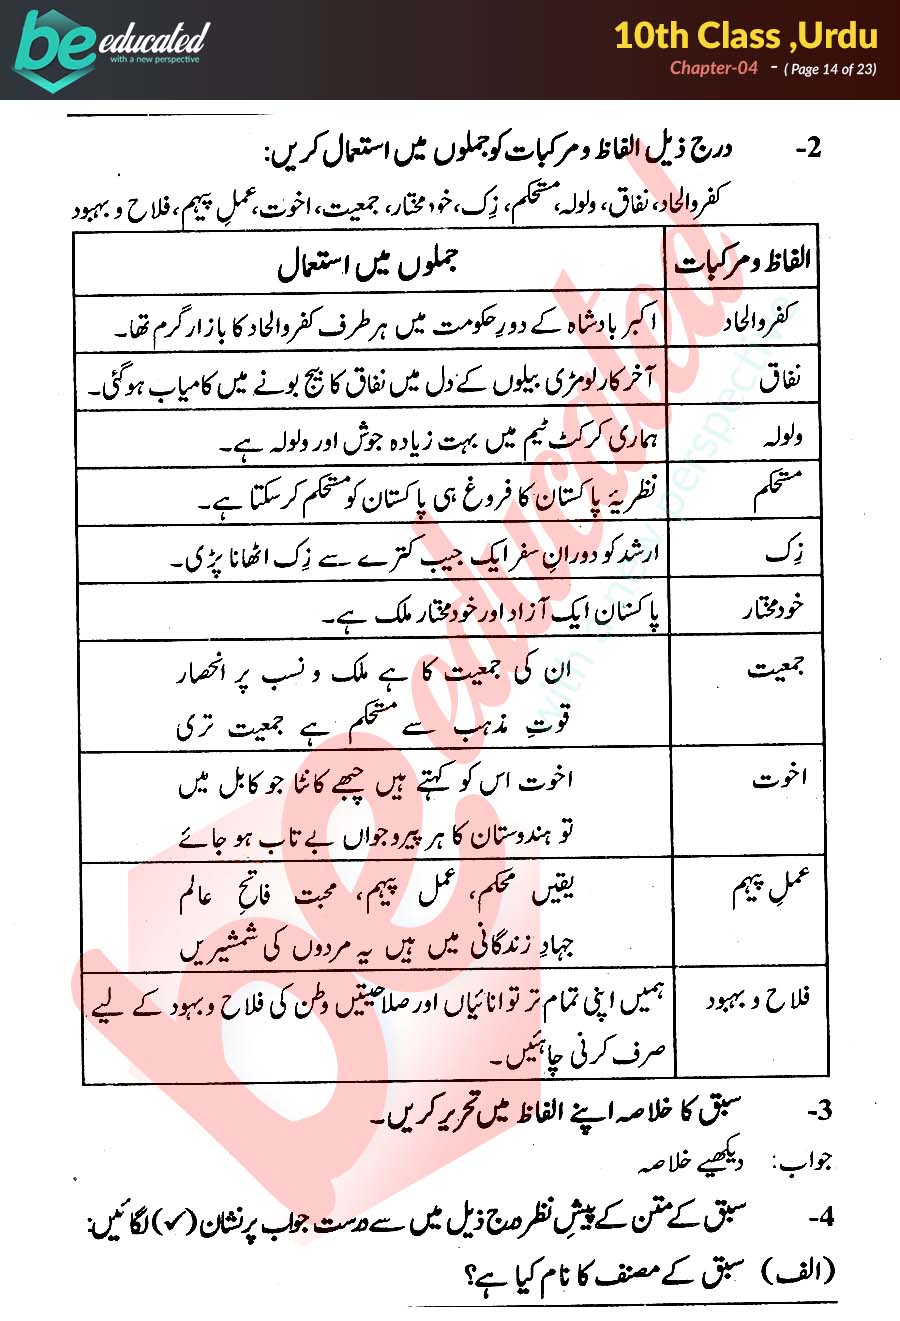 be educated
with a new perspective
10th Class ,Urdu
Chapter-04 - ( Page 14 of 23)
2- درج ذیل الفاظ و مرکبات کو جملوں میں استعمال کریں:
کفر و الحاد، نفاق، ولولہ، مستحکم، زِک، خود مختار، جمعیت، اخوت، عملِ پیہم، فلاح و بہبود
الفاظ و مرکبات جملوں میں استعمال
کفر و الحاد اکبر بادشاہ کے دورِ حکومت میں ہر طرف کفر و الحاد کا بازار گرم تھا۔
نفاق آخر کار لومڑی بیلوں کے دل میں نفاق کا بیج بونے میں کامیاب ہوگئی۔
ولولہ ہماری کرکٹ ٹیم میں بہت زیادہ جوش اور ولولہ ہے۔
مستحکم نظریۂ پاکستان کا فروغ ہی پاکستان کو مستحکم کر سکتا ہے۔
زِک ارشد کو دورانِ سفر ایک جیب کترے سے زِک اٹھانا پڑی۔
خود مختار پاکستان ایک آزاد اور خود مختار ملک ہے۔
جمعیت ان کی جمعیت کا ہے ملک و نسب پر انحصار
قوتِ مذہب سے مستحکم ہے جمعیت تری
اخوت اخوت اس کو کہتے ہیں چبھے کانٹا جو کابل میں
تو ہندوستان کا ہر پیر و جواں بے تاب ہو جائے
عملِ پیہم یقیں محکم، عمل پیہم، محبت فاتحِ عالم
جہادِ زندگانی میں ہیں یہ مردوں کی شمشیریں
فلاح و بہبود ہمیں اپنی تمام تر توانائیاں اور صلاحیتیں وطن کی فلاح و بہبود کے لیے
صرف کرنی چاہئیں۔
3- سبق کا خلاصہ اپنے الفاظ میں تحریر کریں۔
جواب: دیکھیے خلاصہ
4- سبق کے متن کے پیشِ نظر درج ذیل میں سے درست جواب پر نشان (✓) لگائیں:
(الف) سبق کے مصنف کا نام کیا ہے؟
be educated
with a new perspective